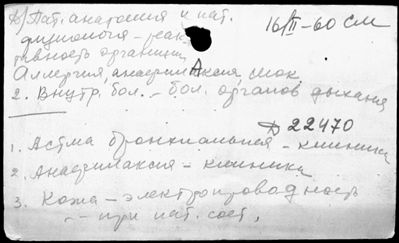 в) Пат. анатомия и пат. 16/II-60 см
физиология - реак-
тивность организма
Аллергия, анафилаксия, шок
2. Внутр. бол. - бол. органов дыхания
Д 22470
1. Астма бронхиальная - клиника
2. Анафилаксия - клиника
3. Кожа - электропроводность
-"- при пат. сост.